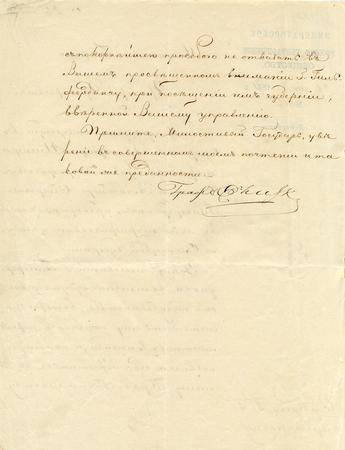 съ покорнѣйшею просьбою не отказать въ
Вашемъ просвѣщенномъ вниманіи Г. Гиль
фердингу, при посѣщеніи имъ губерніи,
ввѣренной Вашему управленію.
Примите, Милостивый Государь, увѣ
реніе въ совершенномъ моемъ почтеніи и та
ковой же преданности.
Графъ